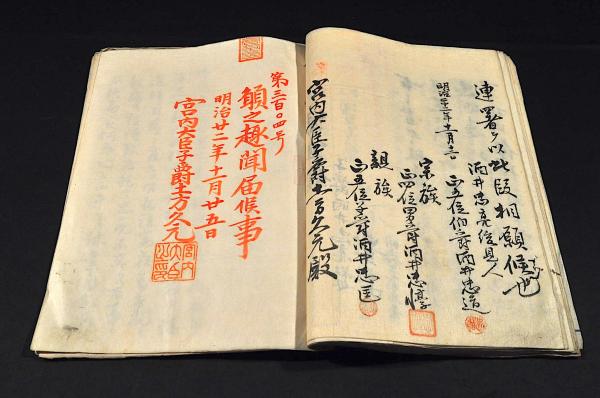 連署ヲ以此段相願候也
明治廿二年十一月日
酒井忠亮後見人
正五位伯爵酒井忠道
宗族
正四位男爵酒井忠惇
親族
正五位子爵酒井忠匡
宮内大臣子爵土方久元殿
第三百〇四号
願之趣聞届候事
明治廿二年十一月廿五日
宮内大臣子爵土方久元
宮内大臣之印